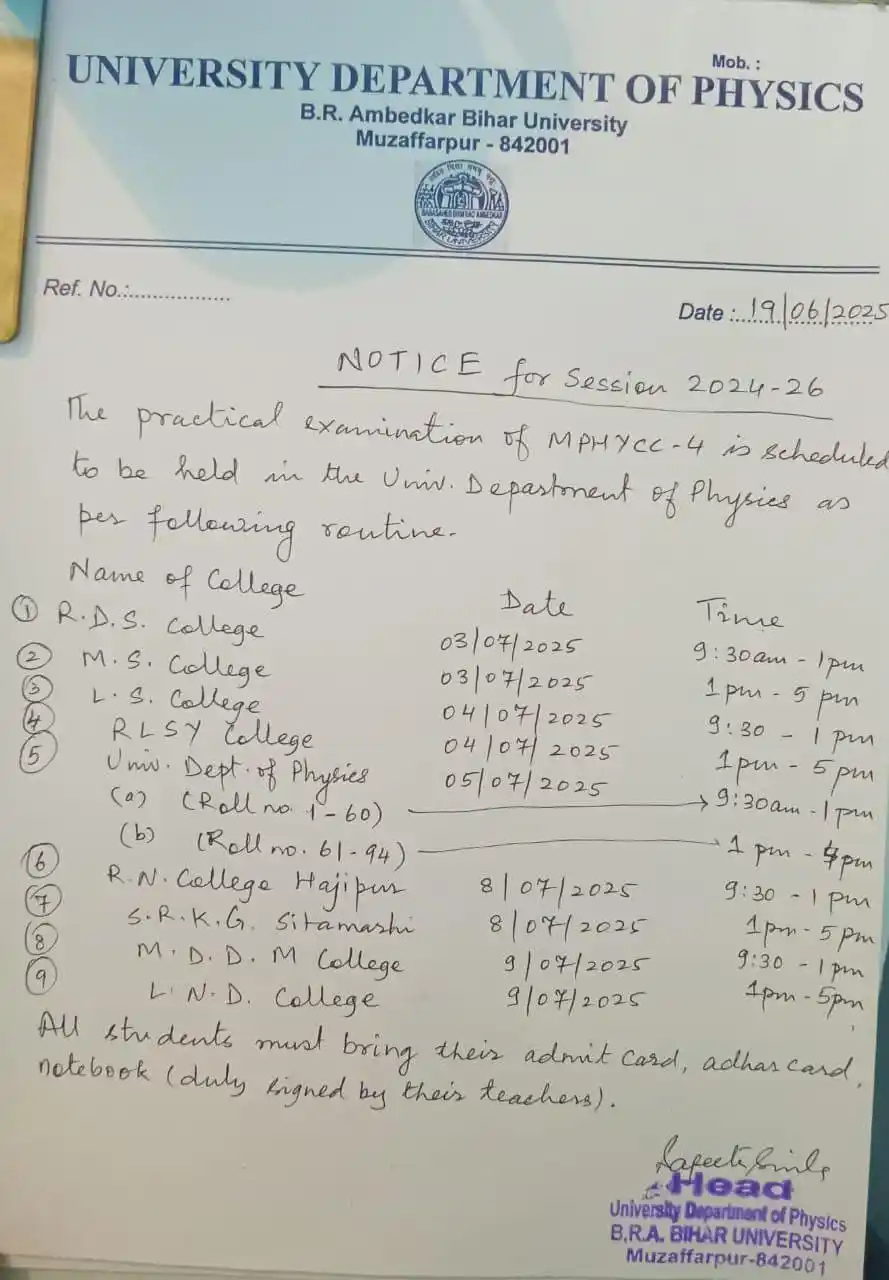 Mob. :
UNIVERSITY DEPARTMENT OF PHYSICS
B.R. Ambedkar Bihar University
Muzaffarpur - 842001
BIHAR UNIVERSITY
Ref. No.:..................
Date :..19/06/2025
NOTICE for Session 2024-26
The practical examination of MPHYCC-4 is scheduled
to be held in the Univ. Department of Physics as
per following routine.
Name of College Date Time
① R.D.S. College 03/07/2025 9:30am - 1pm
② M.S. College 03/07/2025 1pm - 5 pm
③ L.S. College 04/07/2025 9:30 - 1 pm
④ RLSY College 04/07/2025 1pm - 5 pm
⑤ Univ. Dept. of Physics 05/07/2025
(a) (Roll no. 1-60) → 9:30am - 1pm
(b) (Roll no. 61-94) → 1 pm - 4pm
⑥ R.N. College Hajipur 8/07/2025 9:30 - 1 pm
⑦ S.R.K.G. Sitamarhi 8/07/2025 1pm - 5 pm
⑧ M.D.D.M College 9/07/2025 9:30 - 1pm
⑨ L.N.D. College 9/07/2025 1pm - 5pm
All students must bring their admit card, adhar card,
notebook (duly signed by their teachers).
Head
University Department of Physics
B.R.A. BIHAR UNIVERSITY
Muzaffarpur-842001